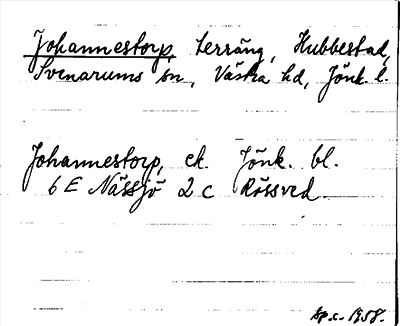 Johannestorp, Lerräng, Hubbestad,
Svenarums sn, Västra hd, Jönk. l.
Johannestorp, ek. Jönk. bl.
6 E Nässjö 2 c Rössved
tp.c. 1958.